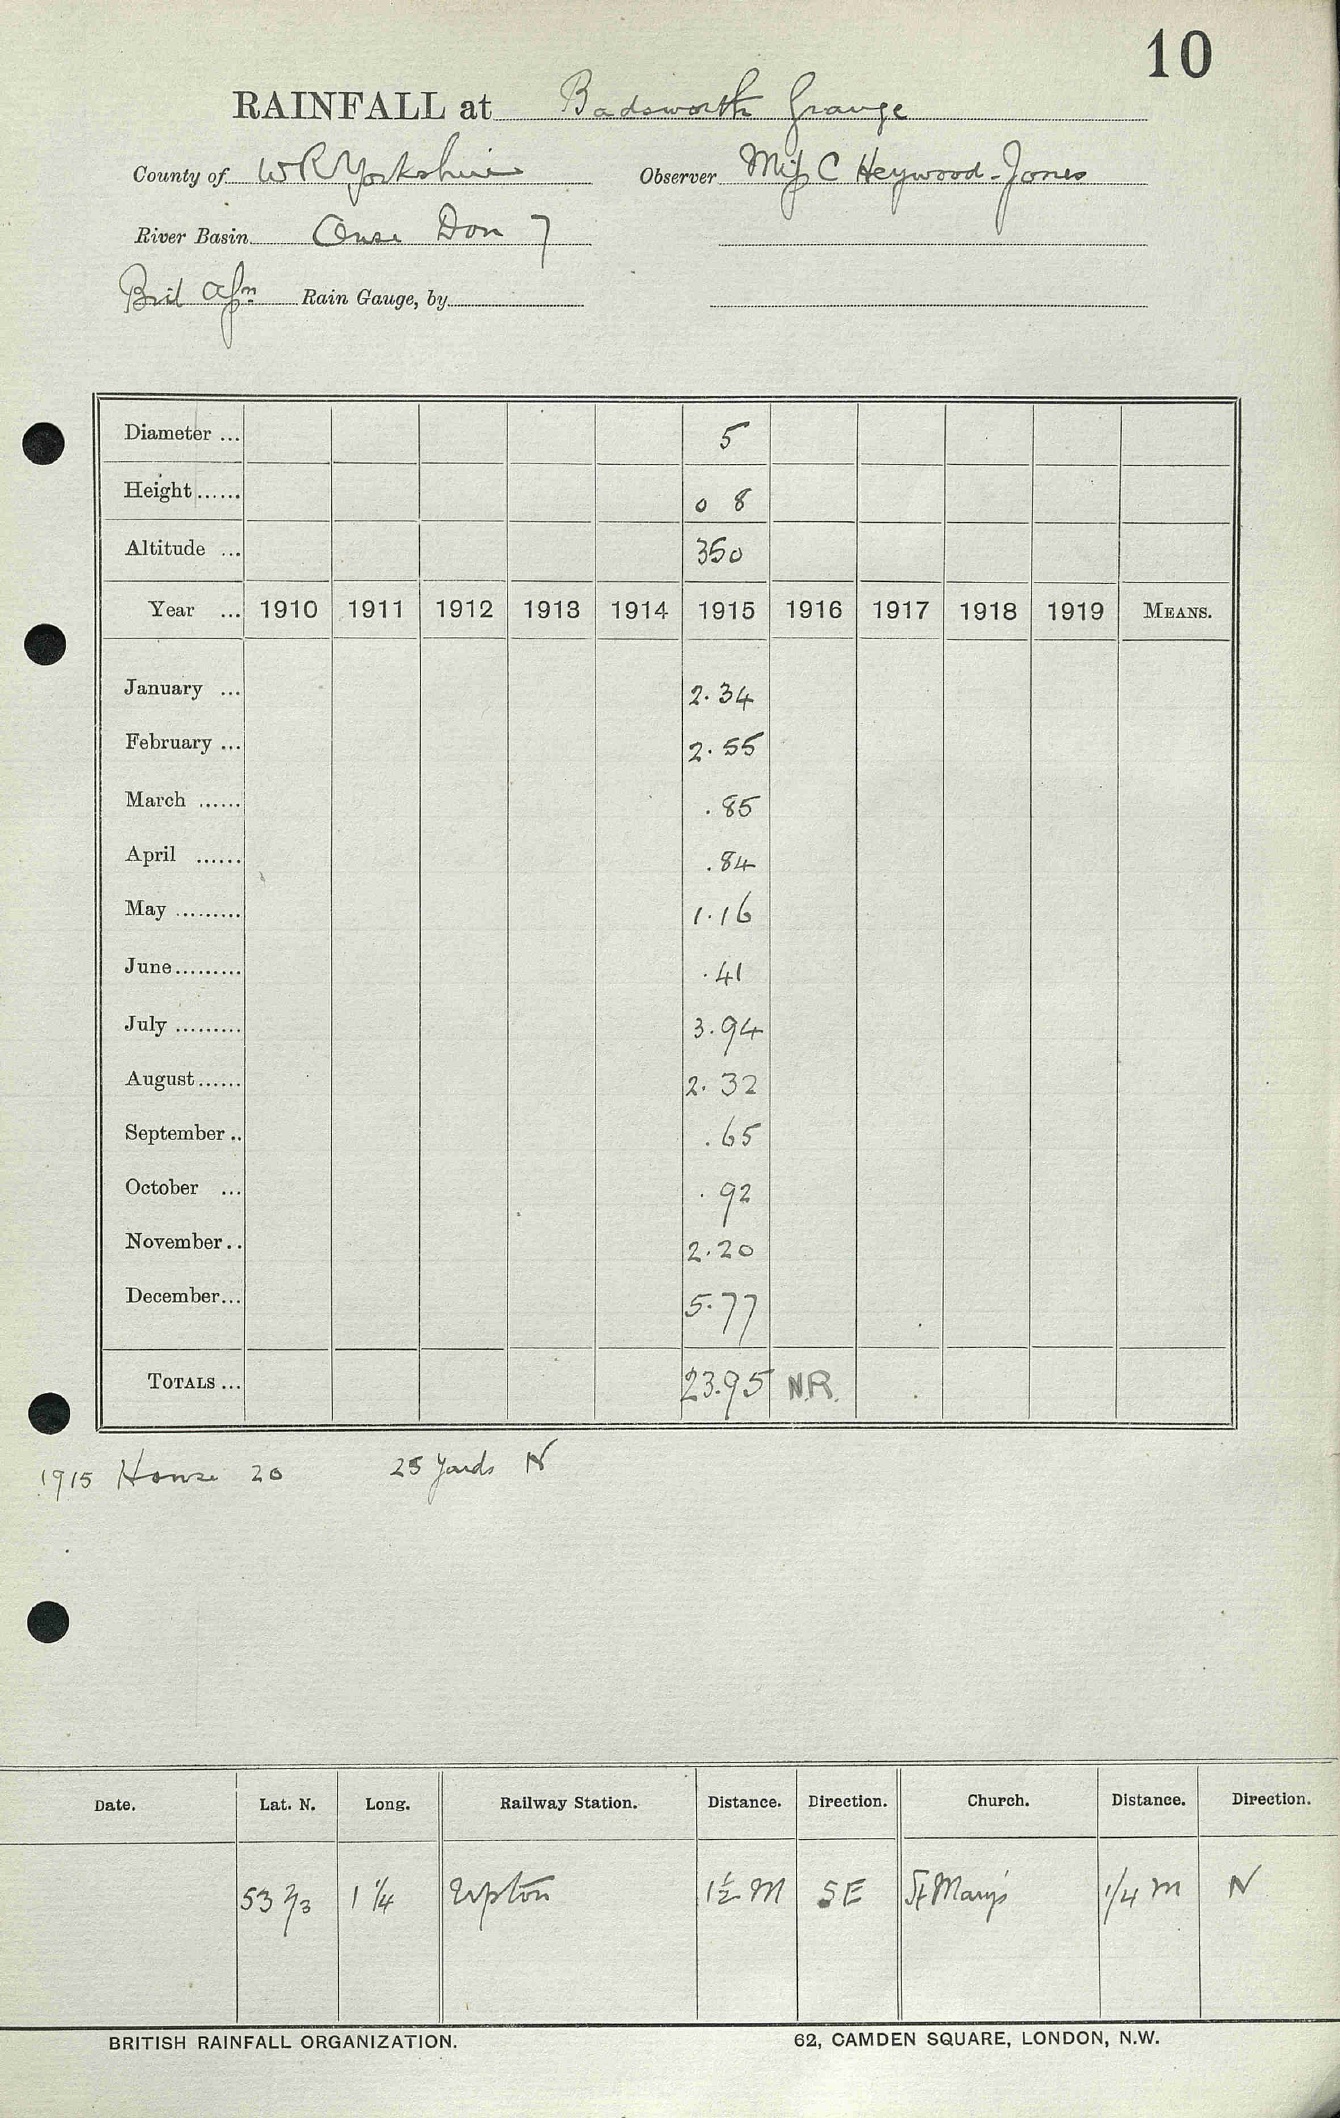 10
RAINFALL at Badsworth Grange
County of W R Yorkshire Observer Miss C Heywood-Jones
River Basin Ouse Don 7
Brit Assn Rain Gauge, by
Diameter ... 5
Height ...... 0 8
Altitude ... 350
Year ... 1910 1911 1912 1913 1914 1915 1916 1917 1918 1919 MEANS.
January ... 2.34
February ... 2.55
March ...... .85
April ...... .84
May ......... 1.16
June ......... .41
July ......... 3.94
August ...... 2.32
September .. .65
October ... .92
November .. 2.20
December ... 5.77
TOTALS ... 23.95 N.R.
1915 House 20 25 Yards N
Date. Lat. N. Long. Railway Station. Distance. Direction. Church. Distance. Direction.
53 2/3 1 1/4 Upton 1 1/2 M SE St Mary's 1/4 M N
BRITISH RAINFALL ORGANIZATION. 62, CAMDEN SQUARE, LONDON, N.W.